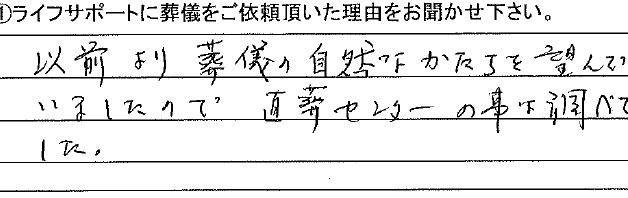 ①ライフサポートに葬儀をご依頼頂いた理由をお聞かせ下さい。
以前より葬儀の自然なかたちを望んで
いましたので 直葬センターの事は調べて
した。